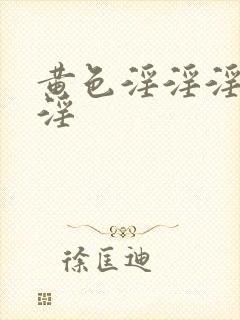 黄色淫淫淫
淫
徐匡迪